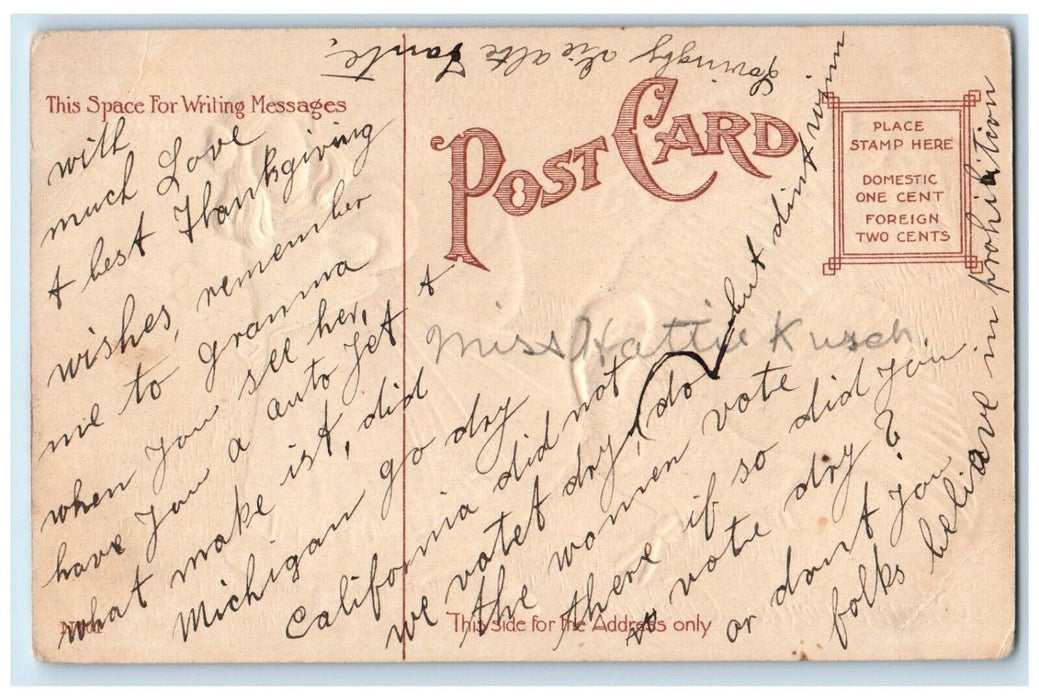 This Space For Writing Messages
POST CARD
PLACE
STAMP HERE
DOMESTIC
ONE CENT
FOREIGN
TWO CENTS
Miss Hattie Kusch
This side for the Address only
with
much Love
+ best Thankgiving
wishes, remember
me to granma
when you see her,
have you a auto yet +
what make ist, did
Michigan go dry
California did not
we votet dry, do
but dint winn
the women vote
there if so did you
vote dry?
or dont you
folks beliave in prohibition
Lovingly die alte Tante.